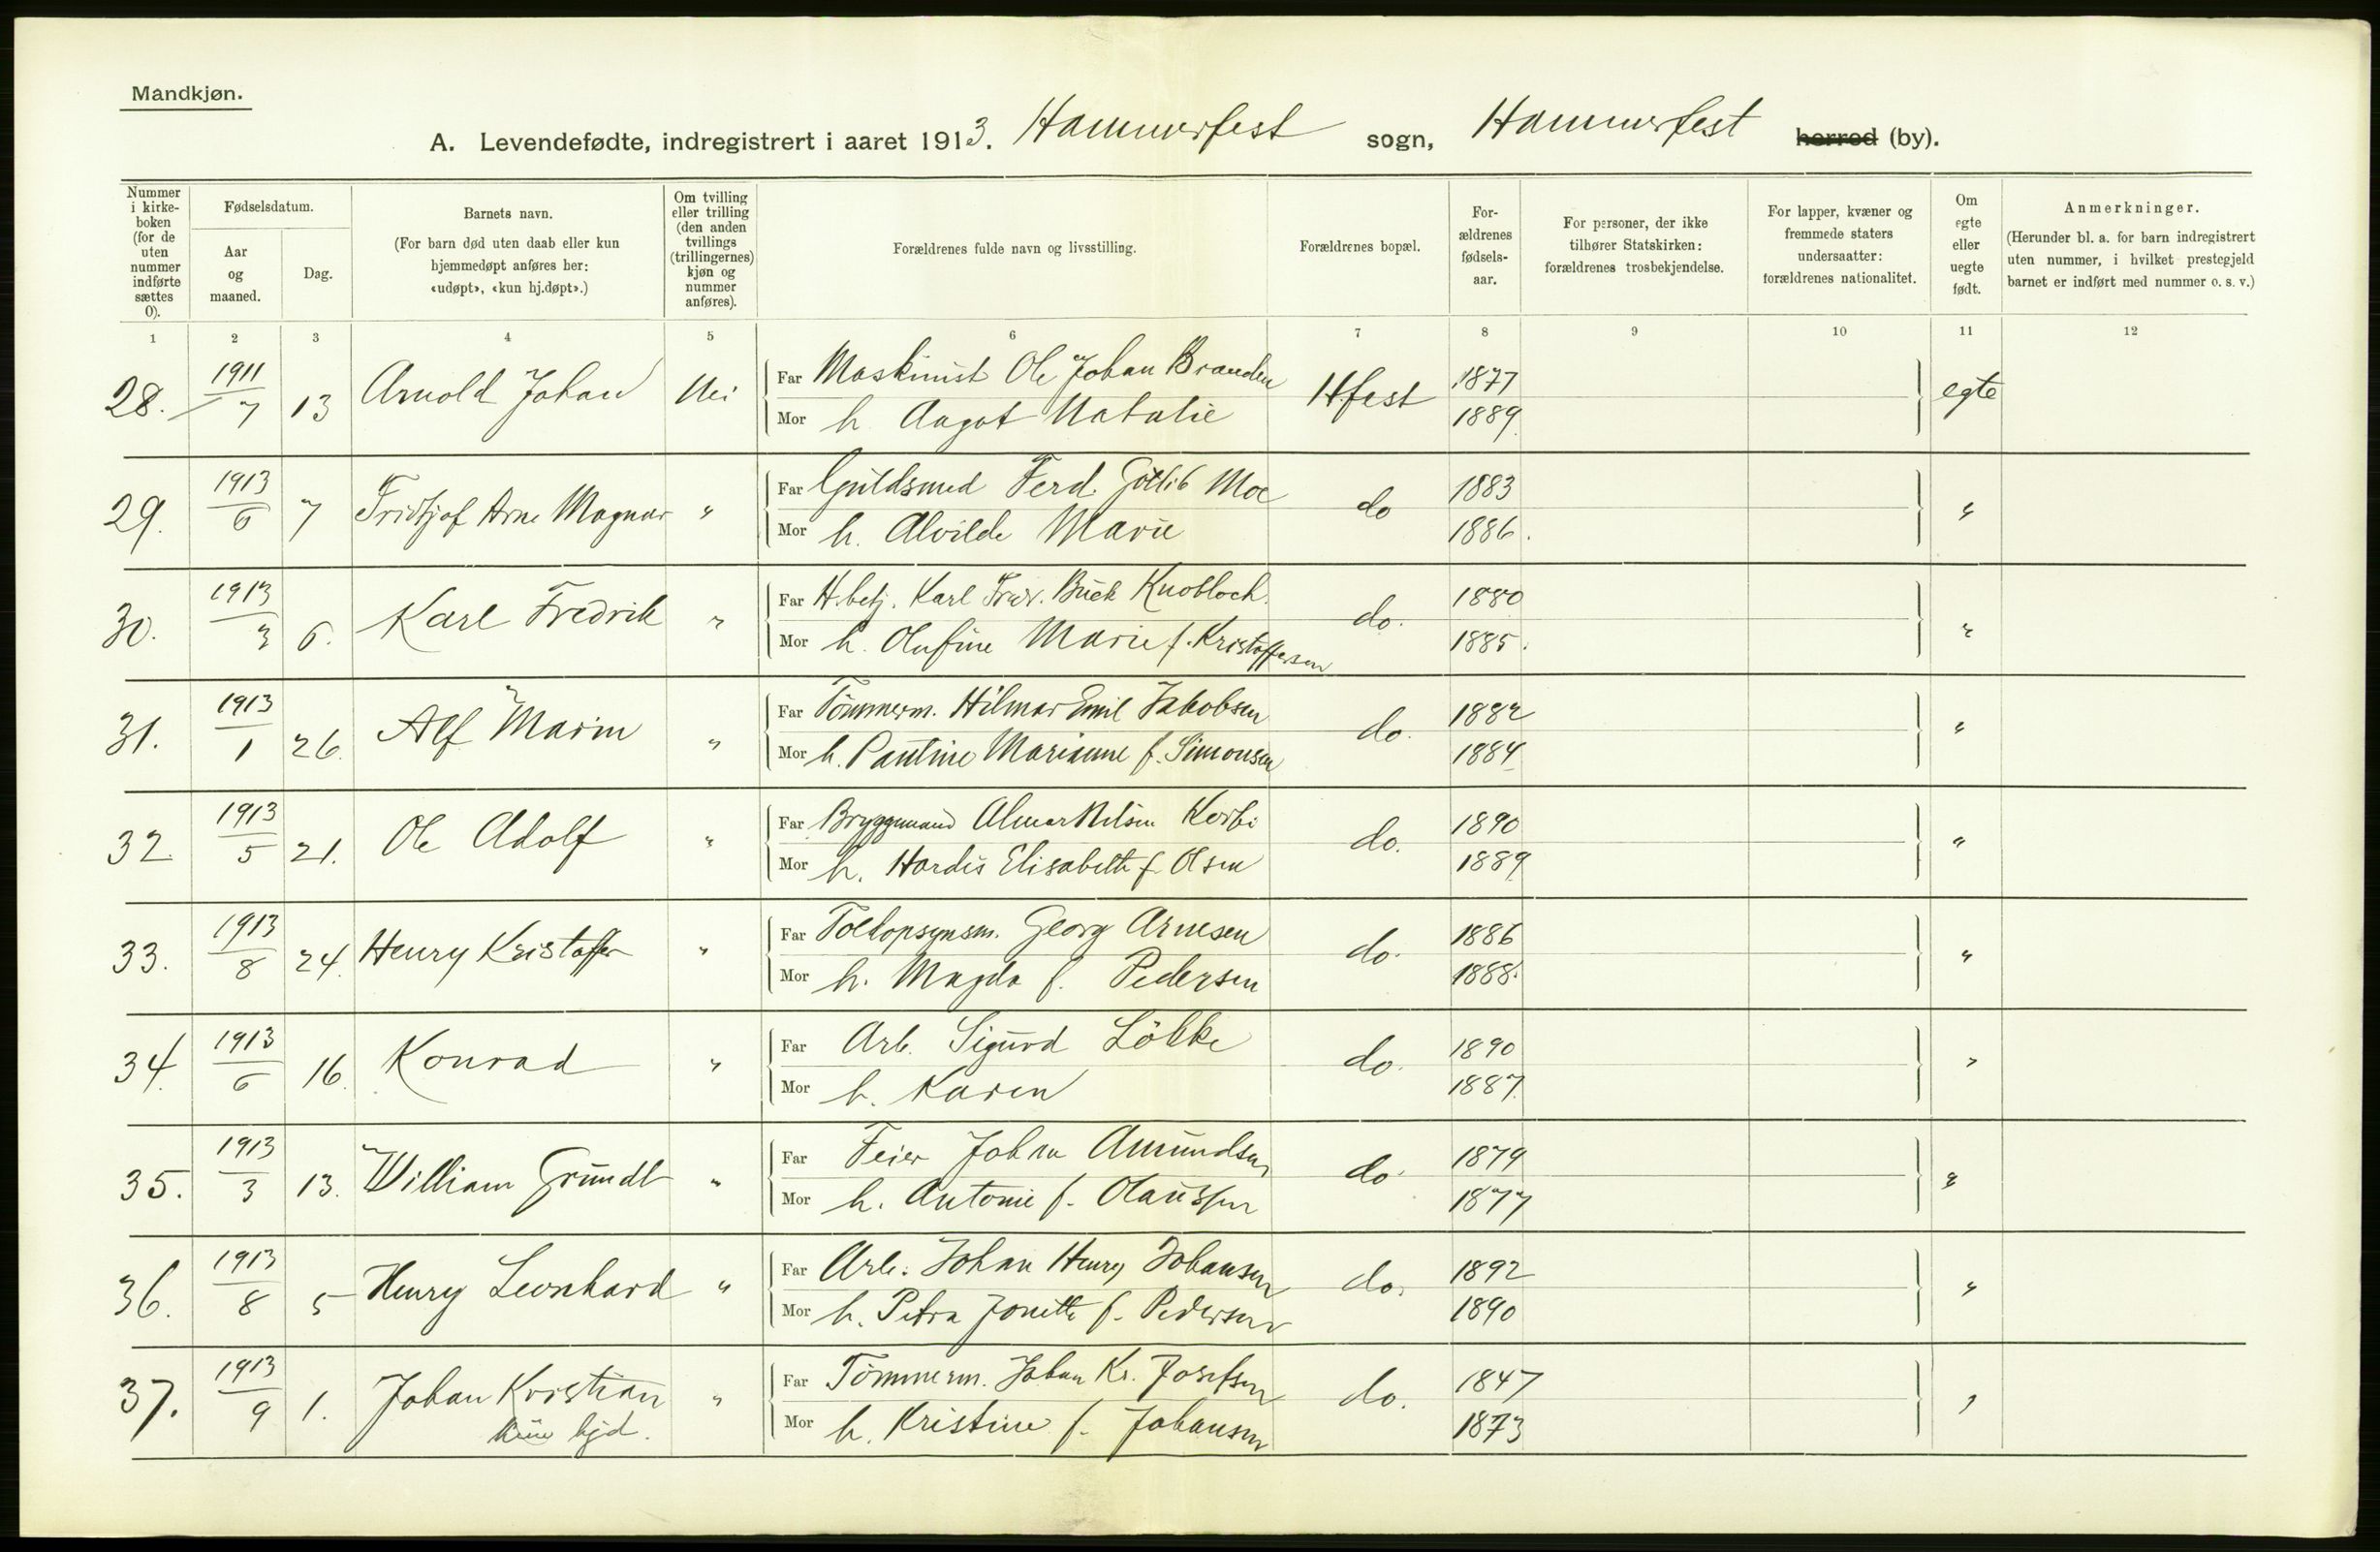 Mandkjøn.
A. Levendefødte, indregistrert i aaret 1913. Hammerfest sogn, Hammerfest herred (by).
Nummer i kirke-boken (for de uten nummer indførte sættes 0).
Fødselsdatum.
Aar og maaned.
Dag.
Barnets navn.
(For barn død uten daab eller kun hjemmedøpt anføres her: «udøpt», «kun hj.døpt».)
Om tvilling eller trilling (den anden tvillings (trillingernes) kjøn og nummer anføres).
Forældrenes fulde navn og livsstilling.
Forældrenes bopæl.
For-ældrenes fødsels-aar.
For personer, der ikke tilhører Statskirken: forældrenes trosbekjendelse.
For lapper, kvæner og fremmede staters undersaatter: forældrenes nationalitet.
Om egte eller uegte født.
Anmerkninger.
(Herunder bl. a. for barn indregistrert uten nummer, i hvilket prestegjeld barnet er indført med nummer o. s. v.)
1 2 3 4 5 6 7 8 9 10 11 12
28. 1911/7 13 Arnold Johan Nei Far Maskinist Ole Johan Branden Hfest 1877 egte
Mor h. Aagot Natalie 1889.
29. 1913/6 7 Fridtjof Arne Magnar " Far Guldsmed Ferd. Gotlib Moe do 1883 "
Mor h. Alvilde Marie 1886.
30. 1913/3 6. Karl Fredrik " Far H.betj. Karl Fredr. Buck Knobloch. do. 1880 "
Mor h. Olufine Marie f. Kristoffersen 1885.
31. 1913/1 26. Alf Marin " Far Tømmerm. Hilmar Emil Jakobsen do. 1882 "
Mor h. Pauline Marianne f. Simonsen 1884
32. 1913/5 21. Ole Adolf " Far Bryggemand Almar Nilsen Korbi do. 1890 "
Mor h. Hardis Elisabeth f. Olsen 1889
33. 1913/8 24. Henry Kristoffer " Far Toldopsynsm. Georg Arnesen do. 1886 "
Mor h. Magda f. Pedersen 1888.
34. 1913/6 16. Konrad " Far Arb. Sigurd Løkke do. 1890 "
Mor h. Karen 1887.
35. 1913/3 13. William Grundt " Far Feier Johan Amundsen do. 1879 "
Mor h. Antonie f. Olaussen 1877
36. 1913/8 5 Henry Leonhard " Far Arb. Johan Henry Johansen do. 1892 "
Mor h. Petra Jonette f. Pedersen 1890
37. 1913/9 1. Johan Kristian " Far Tømmerm. Johan Kr. Josefsen do. 1847 "
kun hjd. Mor h. Kristine f. Johansen 1873